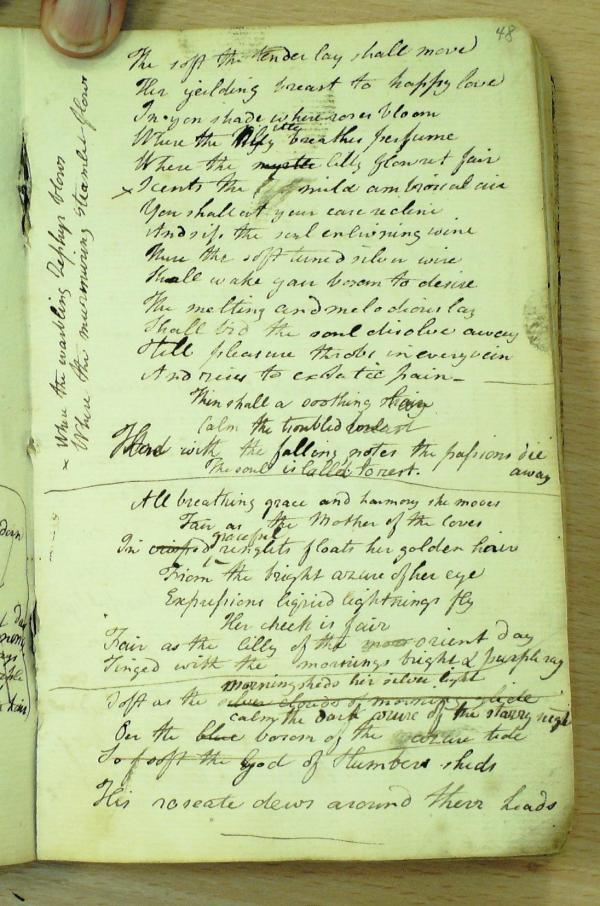 48
The soft the tender lay shall move
Her yeilding breast to happy love
In yon shade where roses bloom
Where the breathes perfume
Where the myrtle lilly flowret fair
x Scents the mild ambrosial air
You shall at your ease recline
And sip the soul enlivning wine
There the soft tuned silver wire
Shall wake your bosom to desire
The melting and melodious lay
Shall bid the soul disolve away
Till pleasure throbs in every vein
And rises to exstatic pain_
Then shall a soothing
Calm the troubled
And with the falling notes the passions die
away
The soul is lulled to rest.
All breathing grace and harmony she moves
Fair as the Mother of the loves
graceful
In ringlets floats her golden hair
From the bright azure of her eye
Expressions liquid lightnings fly
Her cheek is fair
Fair as the lilly of the orient day
Tinged with the mornings bright & purple ray
morning sheds her silver light
Soft as the silver clouds of morning glide
calm the dark azure of the starry night
Oer the blue bosom of the azure tide
So soft the God of Slumbers sheds
His roseate dews around their heads
x Where the warbling Zephyr blows
Where the murmuring streamlet flows